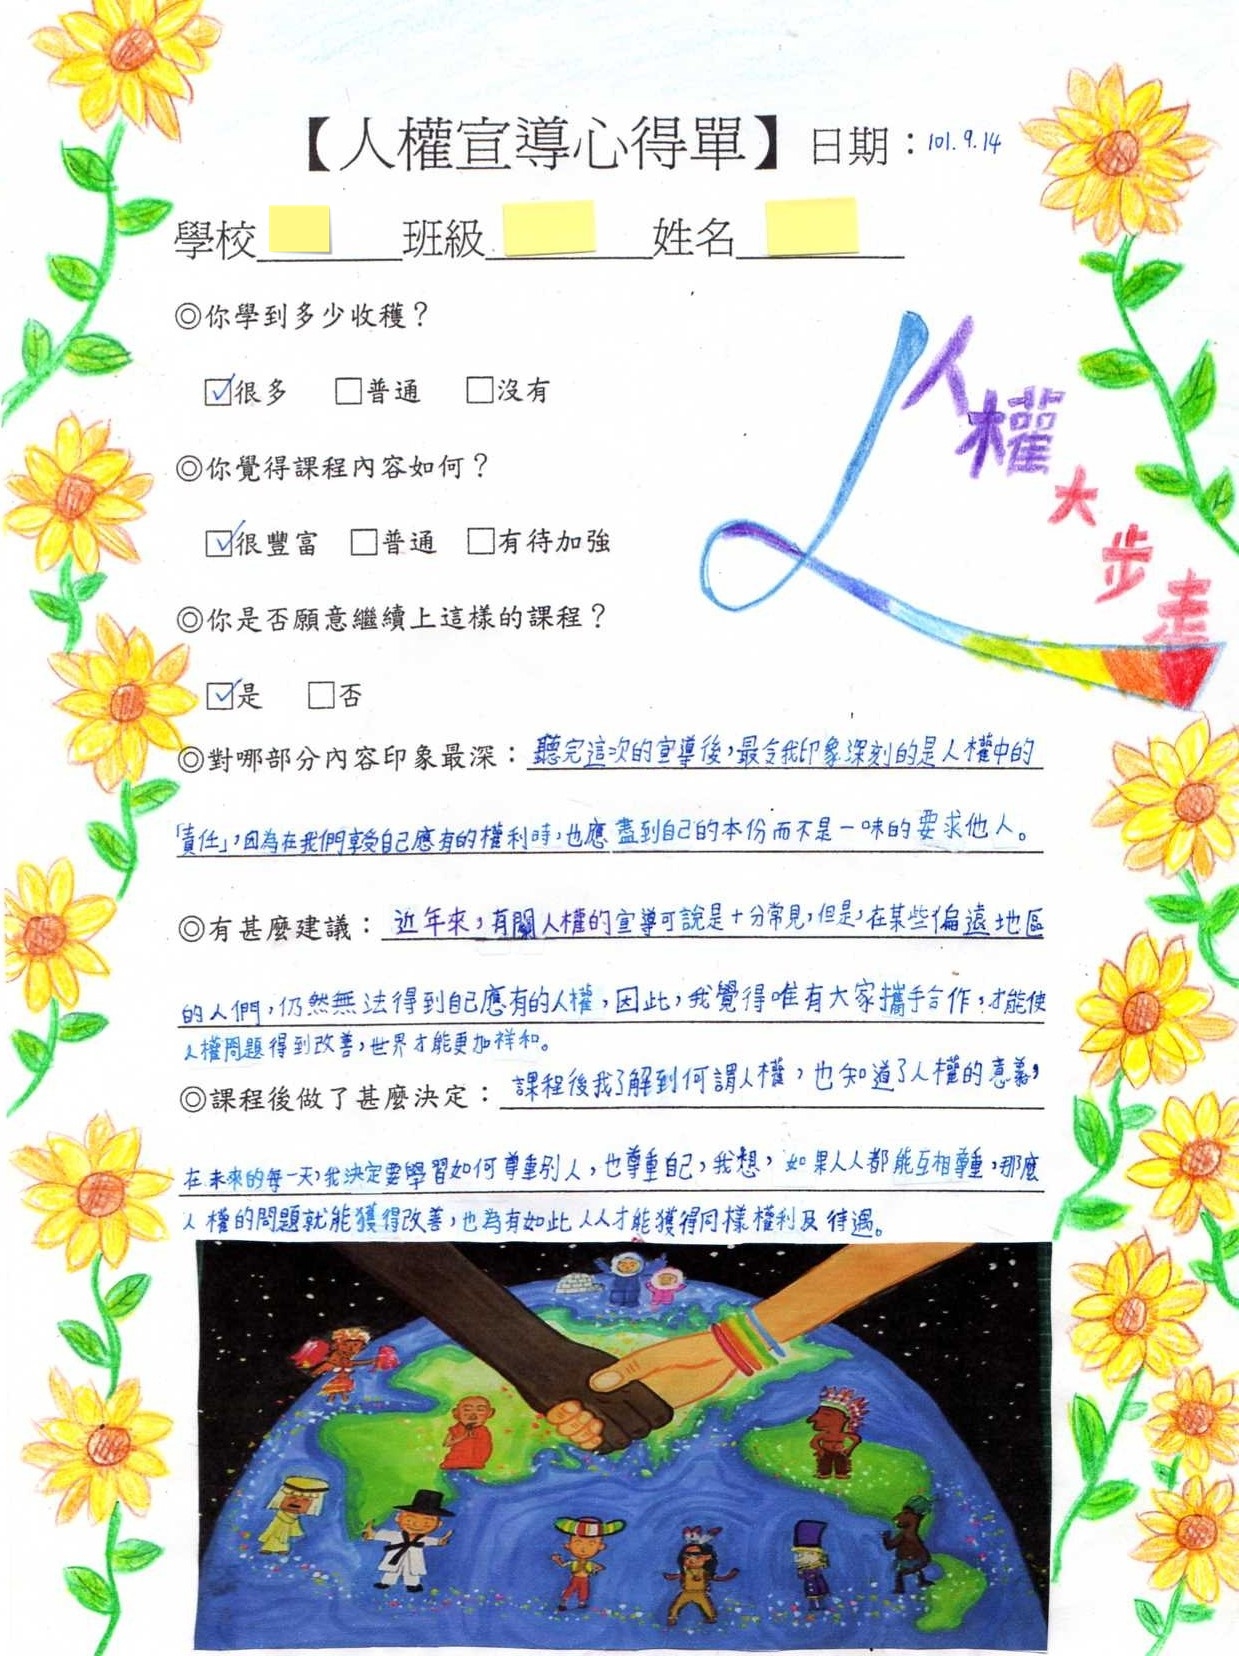 【人權宣導心得單】日期：101.9.14
學校 班級 姓名
◎你學到多少收穫？
☑很多 □普通 □沒有
◎你覺得課程內容如何？
☑很豐富 □普通 □有待加強
◎你是否願意繼續上這樣的課程？
☑是 □否
人權大步走
◎對哪部分內容印象最深：聽完這次的宣導後，最令我印象深刻的是人權中的
「責任」，因為在我們享受自己應有的權利時，也應盡到自己的本份而不是一味的要求他人。
◎有甚麼建議：近年來，有關人權的宣導可說是十分常見，但是，在某些偏遠地區
的人們，仍然無法得到自己應有的人權，因此，我覺得唯有大家攜手合作，才能使
人權問題得到改善，世界才能更加祥和。
◎課程後做了甚麼決定：課程後我了解到何謂人權，也知道了人權的意義，
在未來的每一天，我決定要學習如何尊重別人，也尊重自己，我想，如果人人都能互相尊重，那麼
人權的問題就能獲得改善，也為有如此人人才能獲得同樣權利及待遇。